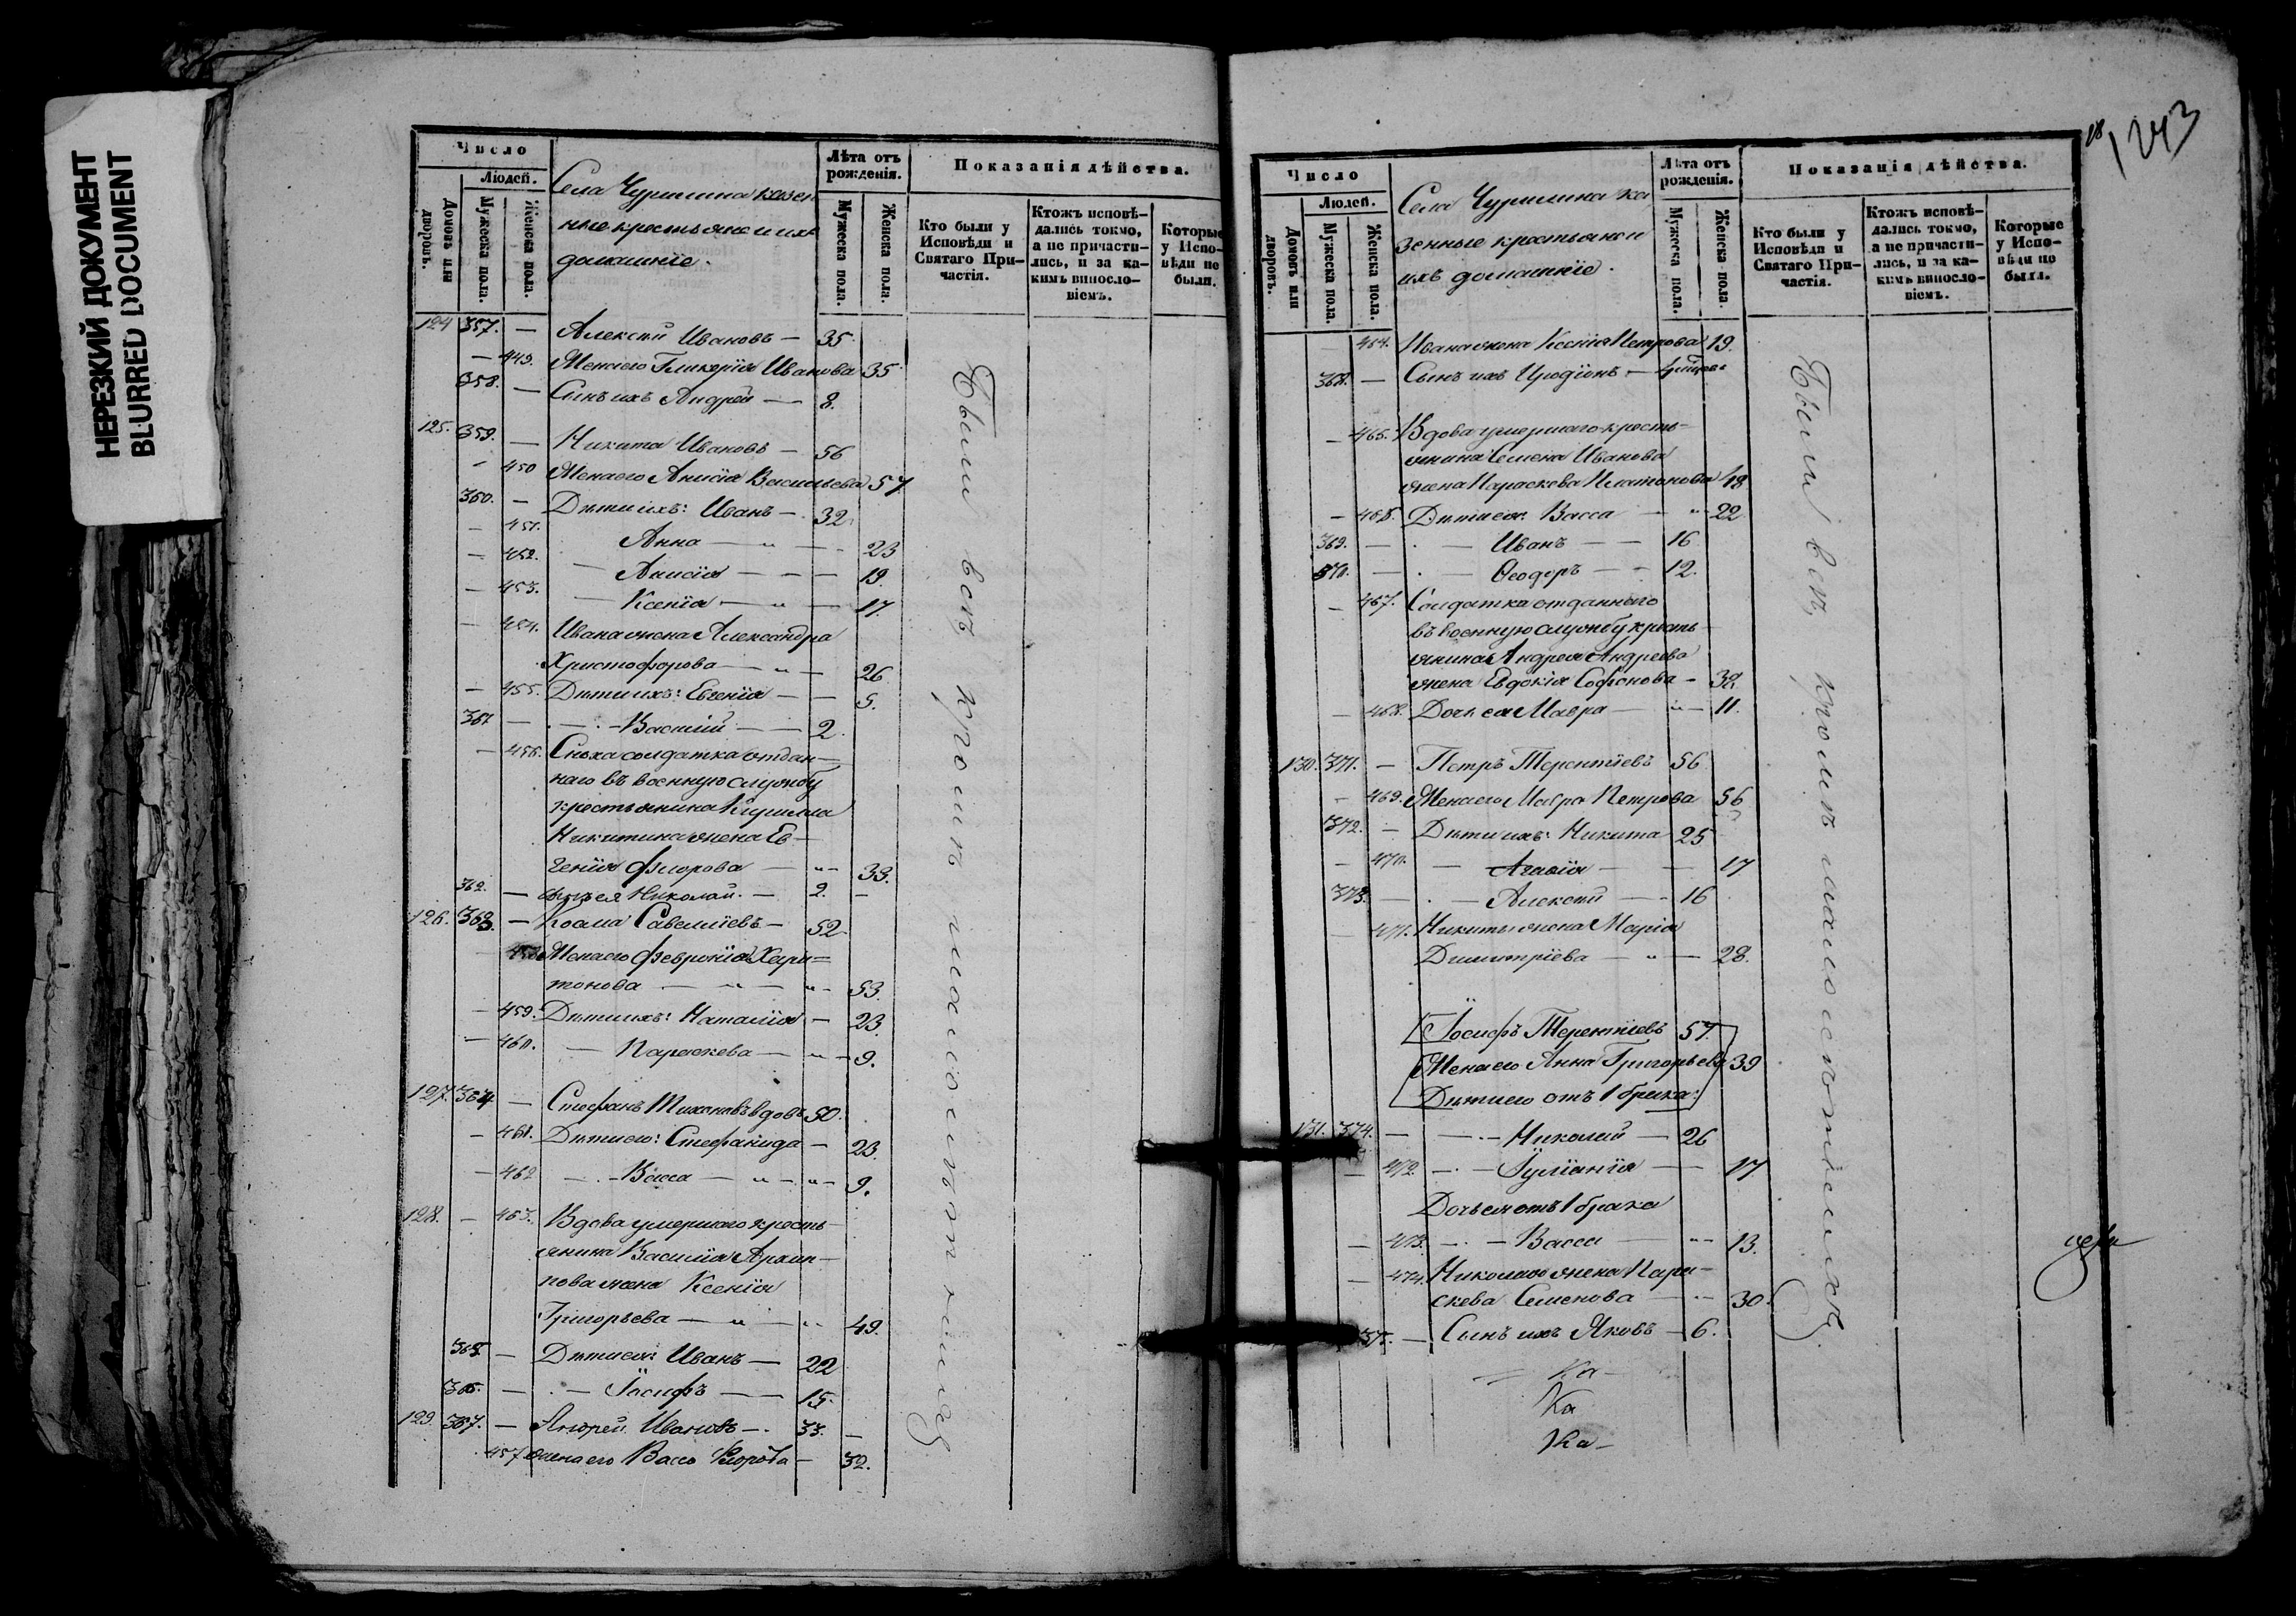 НЕРЕЗКИЙ ДОКУМЕНТ
BLURRED DOCUMENT
Число
Людей.
Домовъ или дворовъ.
Мужеска пола.
Женска пола.
Села Чуришина казен
ные крестьяне и ихъ
домашніе.
Лѣта отъ рожденія.
Мужеска пола.
Женска пола.
Показанія дѣйства.
Кто были у Исповѣди и Святаго Причастія.
Ктожъ исповѣ-
дались токмо,
а не причасти-
лись, и за ка-
кимъ винсло-
віемъ.
Которые
у Испо-
вѣди не
были.
124 357. — Алексѣй Ивановъ — 35
— 449. Жена его Гликерія Иванова 35
358. — Сынъ ихъ Андрей — 8.
125. 359. — Никита Ивановъ — 56
- 450 Жена его Анисія Васильева 57
360. — Дѣти ихъ: Иванъ — 32
— 451. Анна — 23
— 452. — Анисія — 19
— 453. — Ксенія — 17.
— 454. Ивана жена Александра
Христофорова — 26
— 455. Дѣти ихъ: Евгенія — 5.
361 — Василій — 2.
— 456. Сноха солдатка отдан-
наго въ военную службу
крестьянина Кирилла
Никитина жена Ев-
генія Флорова — 33.
362. — сынъ ея Николай. — 2. —
126. 363. — Косма Савеліевъ — 52
Жена его Февронія Хари=
тонова — 53.
— 459. Дѣти ихъ: Наталія — 23.
— 460. — Параскева — 9.
127. 364 — Стефанъ Тихоновъ вдовъ 50.
— 461. Дѣти его: Стефанида — 23.
— 462 — Васса — 9.
128. — 463. Вдова умершаго кресть-
янина Василія Архип-
пова жена Ксенія
Григорьева — 49.
365. — Дѣти ея: Иванъ — 22
366. — Іосифъ — 15.
129. 367. — Андрей Ивановъ — 33. —
457 жена его Васса — 32.
Были всѣ, кромѣ малолѣтнихъ
18
1243
Число
Людей.
Домовъ или дворовъ.
Мужеска пола.
Женска пола.
Села Чуришина ка
зенные крестьяне и
ихъ домашніе.
Лѣта отъ рожденія.
Мужеска пола.
Женска пола.
Показанія дѣйства.
Кто были у Исповѣди и Святаго Причастія.
Ктожъ исповѣ-
дались токмо,
а не причасти-
лись, и за ка-
кимъ винсло-
віемъ.
Которые
у Испо-
вѣди не
были.
464. Ивана жена Ксенія Петрова 19.
368. — Сынъ ихъ Иродіонъ —
— 465. Вдова умершаго кресть-
янина Семена Иванова
жена Параскева Платонова 48
— 466. Дѣти ея: Васса — 22
369. — Иванъ — 16
370. — Ѳеодоръ — 12.
— 467. Солдатка отданнаго
въ военную службу кресть-
янина Андрея Андреева
жена Евдокія Софонова — 32
— 468. Дочь ея Мавра — 11.
130. 371. — Петръ Терентіевъ 56
— 469. Жена его Мавра Петрова 56
372. — Дѣти ихъ: Никита 25
— 470. — Агафія — 17
373. — Алексѣй — 16
— 471. Никиты жена Марія
Димитріева — 28.
Іосифъ Терентіевъ 57.
Жена его Анна Григорьева 39
Дѣти его отъ 1 брака:
131. 374. — Николай — 26
— 472. — Іуліанія — 17
Дочь ея отъ 1 брака
— 473. — Васса — 13.
— 474. Николая жена Пара-
скева Семенова — 30.
375. — Сынъ ихъ Яковъ — 6.
Ка
Ка
Ка
Были всѣ, кромѣ малолѣтнихъ